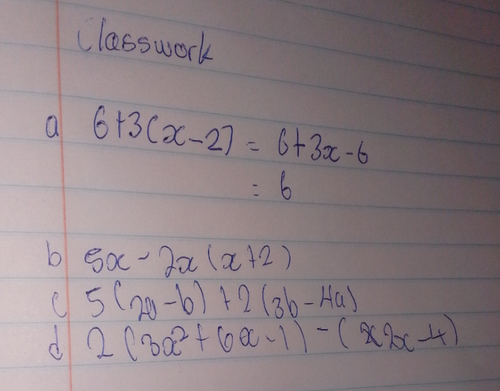 Classwork
a 6+3(x-2) = 6+3x-6
= 6
b 5x - 2x(x+2)
c 5(2a-b) + 2(3b-4a)
d 2(3x²+6x-1) - (2x-4)